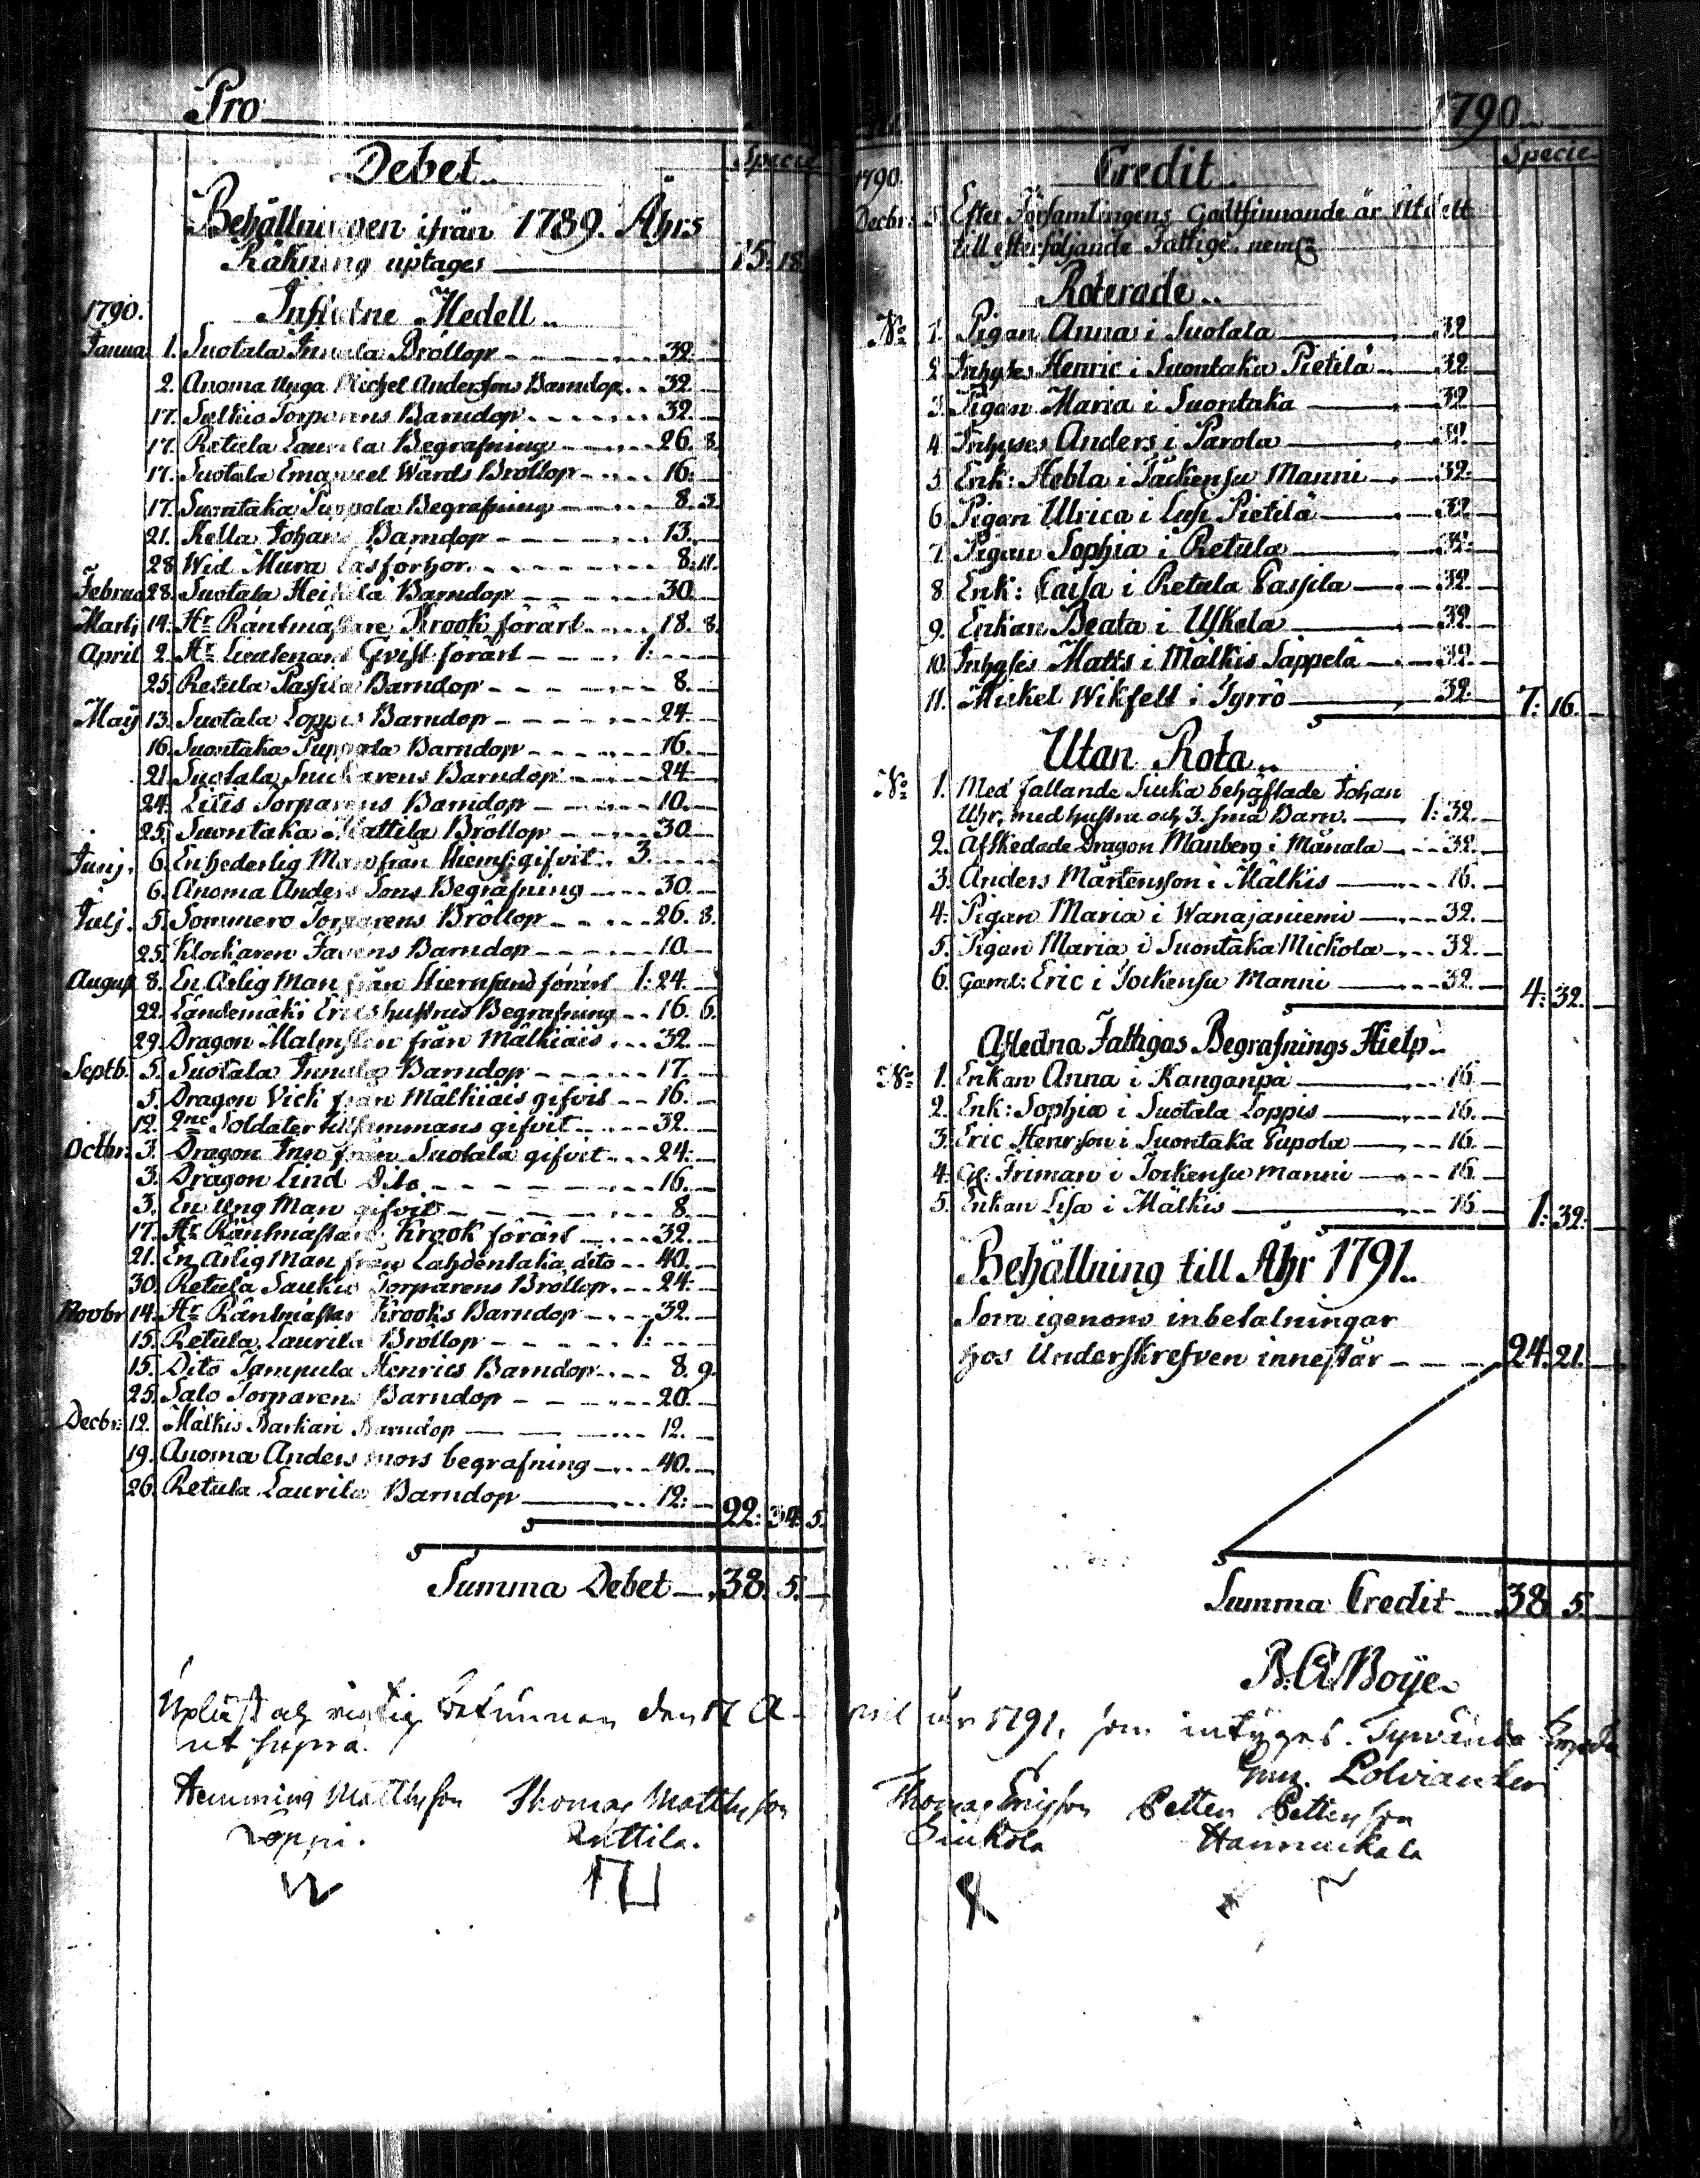 Pro
Debet..
Specie
Behållningen ifrån 1789. Åhrs
Räkning uptages 15. 18
1790. Influtne Medell..
Janua 1. Suotala Innala Bröllop 32.
2. Anoma Unga Michel Anderssons Barndop 32
17. Sulkio Torparens Barndop 32.
17. Retula Laurila Begrafning 26. 8.
17. Suotala Emanuel Wärds Bröllop 16.
17. Suontaka Puppola Begrafning 8. 3.
21. Kella Johans Barndop 13.
28. Wid Mura Läsförhör 8. 11.
Februa 28. Suotala Heikilä Barndop 30
Marti 14. Hr Räntmästare Krook förärt 18. 8.
April 2. Hr Lieutenant Qvist förärt 1:
25. Retula Passila Barndop 8.
Maij 13. Suotala Loppis Barndop 24.
16. Suontaka Puppola Barndop 16.
21. Suotala Snickarens Barndop 24
24. Lilis Torparens Barndop 10.
25. Suontaka Mattila Bröllop 30
Junij. 6. En hederlig Man från Hiems: gifvit 3.
6. Anoma Anders Sons Begrafning 30.
Julj. 5. Sommero Torparens Bröllop 26. 8.
25. Klockaren Favens Barndop 10.
August 8. En Ärlig Man från Hiernsund förärt 1: 24.
22. Ländemäki Erics hustrus Begrafning 16. 6.
29. Dragon Malmsten från Mälkiäis 32.
Septb. 5. Suotala Innala Barndop 17.
5. Dragon Vick från Mälkiäis gifvit 16.
12. 2ne Soldater tillsammans gifvit 32.
Octbr. 3. Dragon Inn från Suotala gifvit 24:
3. Dragon Lind Dito 16.
3. En Ung Man gifvit 8.
17. Hr Räntmästare Krook förärt 32.
21. En Ärlig Man från Lahdentaka dito 40.
30. Retula Saukio Torparens Bröllop 24:
Novbr 14. Hr Räntmästar Krooks Barndop 32.
15. Retula Laurila Bröllop 1:
15. Dito Tampula Henrics Barndop 8. 9.
25. Salo Torparens Barndop 20.
Decbr: 12. Mälkis Barkari Barndop 12.
19. Anoma Anders mors begrafning 40.
26. Retula Laurila Barndop 12:
22: 34. 5.
Summa Debet 38. 5.
1790
Credit..
Specie
1790.
Decbr: 5. Efter Församlingens Godtfinnande är Utdelt
till efterföljande Fattige. neml
Roterade..
No 1. Pigan Anna i Suotala 32
2. Inhyses Henric i Suontaka Pietilä 32
3. Pigan Maria i Suontaka 32
4. Inhyses Anders i Parola 32.
5. Enk: Hebla i Täckensu Manni 32.
6. Pigan Ulrica i Lusi Pietilä 32
7. Pigan Sophia i Retula 32.
8. Enk: Caisa i Retula Passila 32
9. Enkan Beata i Uskela 32
10. Inhyses Matts i Mälkis Sappela 32.
11. Mickel Wikfelt i Tyrrö 32. 7: 16.
Utan Rota..
No 1. Med fallande Siuka behäftade Johan
Uhr, med hustru och 3. små Barn. 1: 32.
2. Afskedade Dragon Månberg i Mänala 32.
3. Anders Mårtensson i Mälkis 16.
4. Pigan Maria i Wanajaniemi 32.
5. Pigan Maria i Suontaka Mickola 32.
6. Gaml: Eric i Jockensu Manni 32. 4: 32.
Afledna Fattigas Begrafnings Hielp..
No 1. Enkan Anna i Kanganpä 16
2. Enk: Sophia i Suotala Loppis 16.
3. Eric Henrsson i Suontaka Pupola 16.
4. Friman i Jockensu Manni 16.
5. Enkan Lisa i Mälkis 16 1: 32.
Behållning till Åhr 1791..
Som igenom inbetalningar
hos Underskrefven innestår 24. 21.
Summa Credit 38 5.
B. A. Boije.
Upläst och riktig befunnen den 17 April år 1791, som intygas. Tyrvändö
ut supra.
Polviander
Hemming Matthsson Thomas Matthsson Thomas Ericsson Petter Pettersson
Loppi. Knttila. Siukola Hannukala